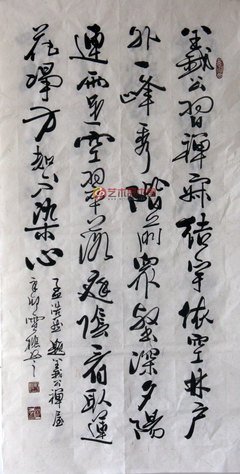 义公习禅寂结宇依空林户
外一峰秀阶前众壑深夕阳
连雨足空翠落庭阴看取莲
花净方知不染心
孟浩然题义公禅房